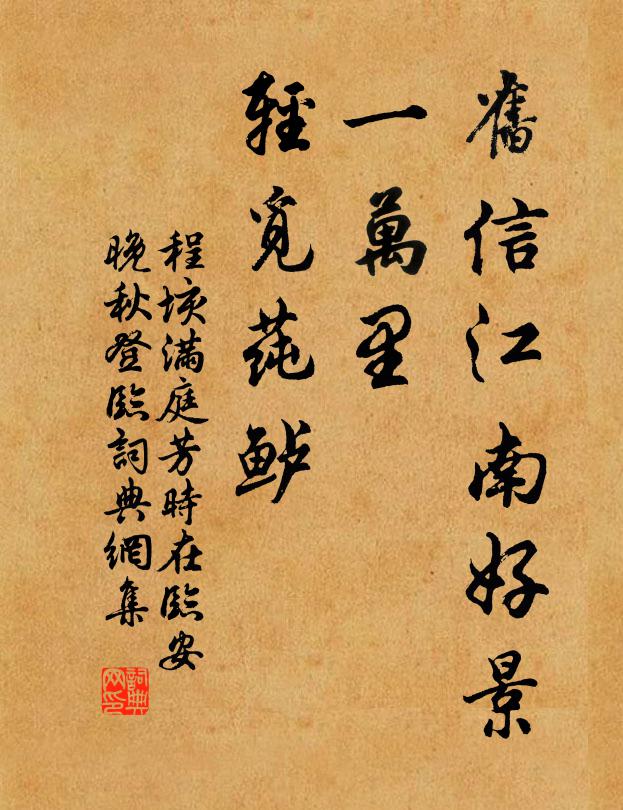 舊信江南好景
一萬里
輕覓莼鲈
程垓满庭芳時在臨安
晚秋登臨詞典網集
詞典网印